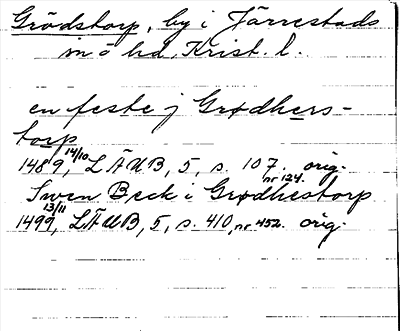 Grödstorp, by i Järrestads
m o hd, Krist. l.
en feste j Grødhers-
torp
1489 14/10, LÄUB, 5, s. 107. nr 124. orig.
Swen Beck i Grødhestorp
1499 13/11, LÄUB, 5, s. 410, nr 452. orig.